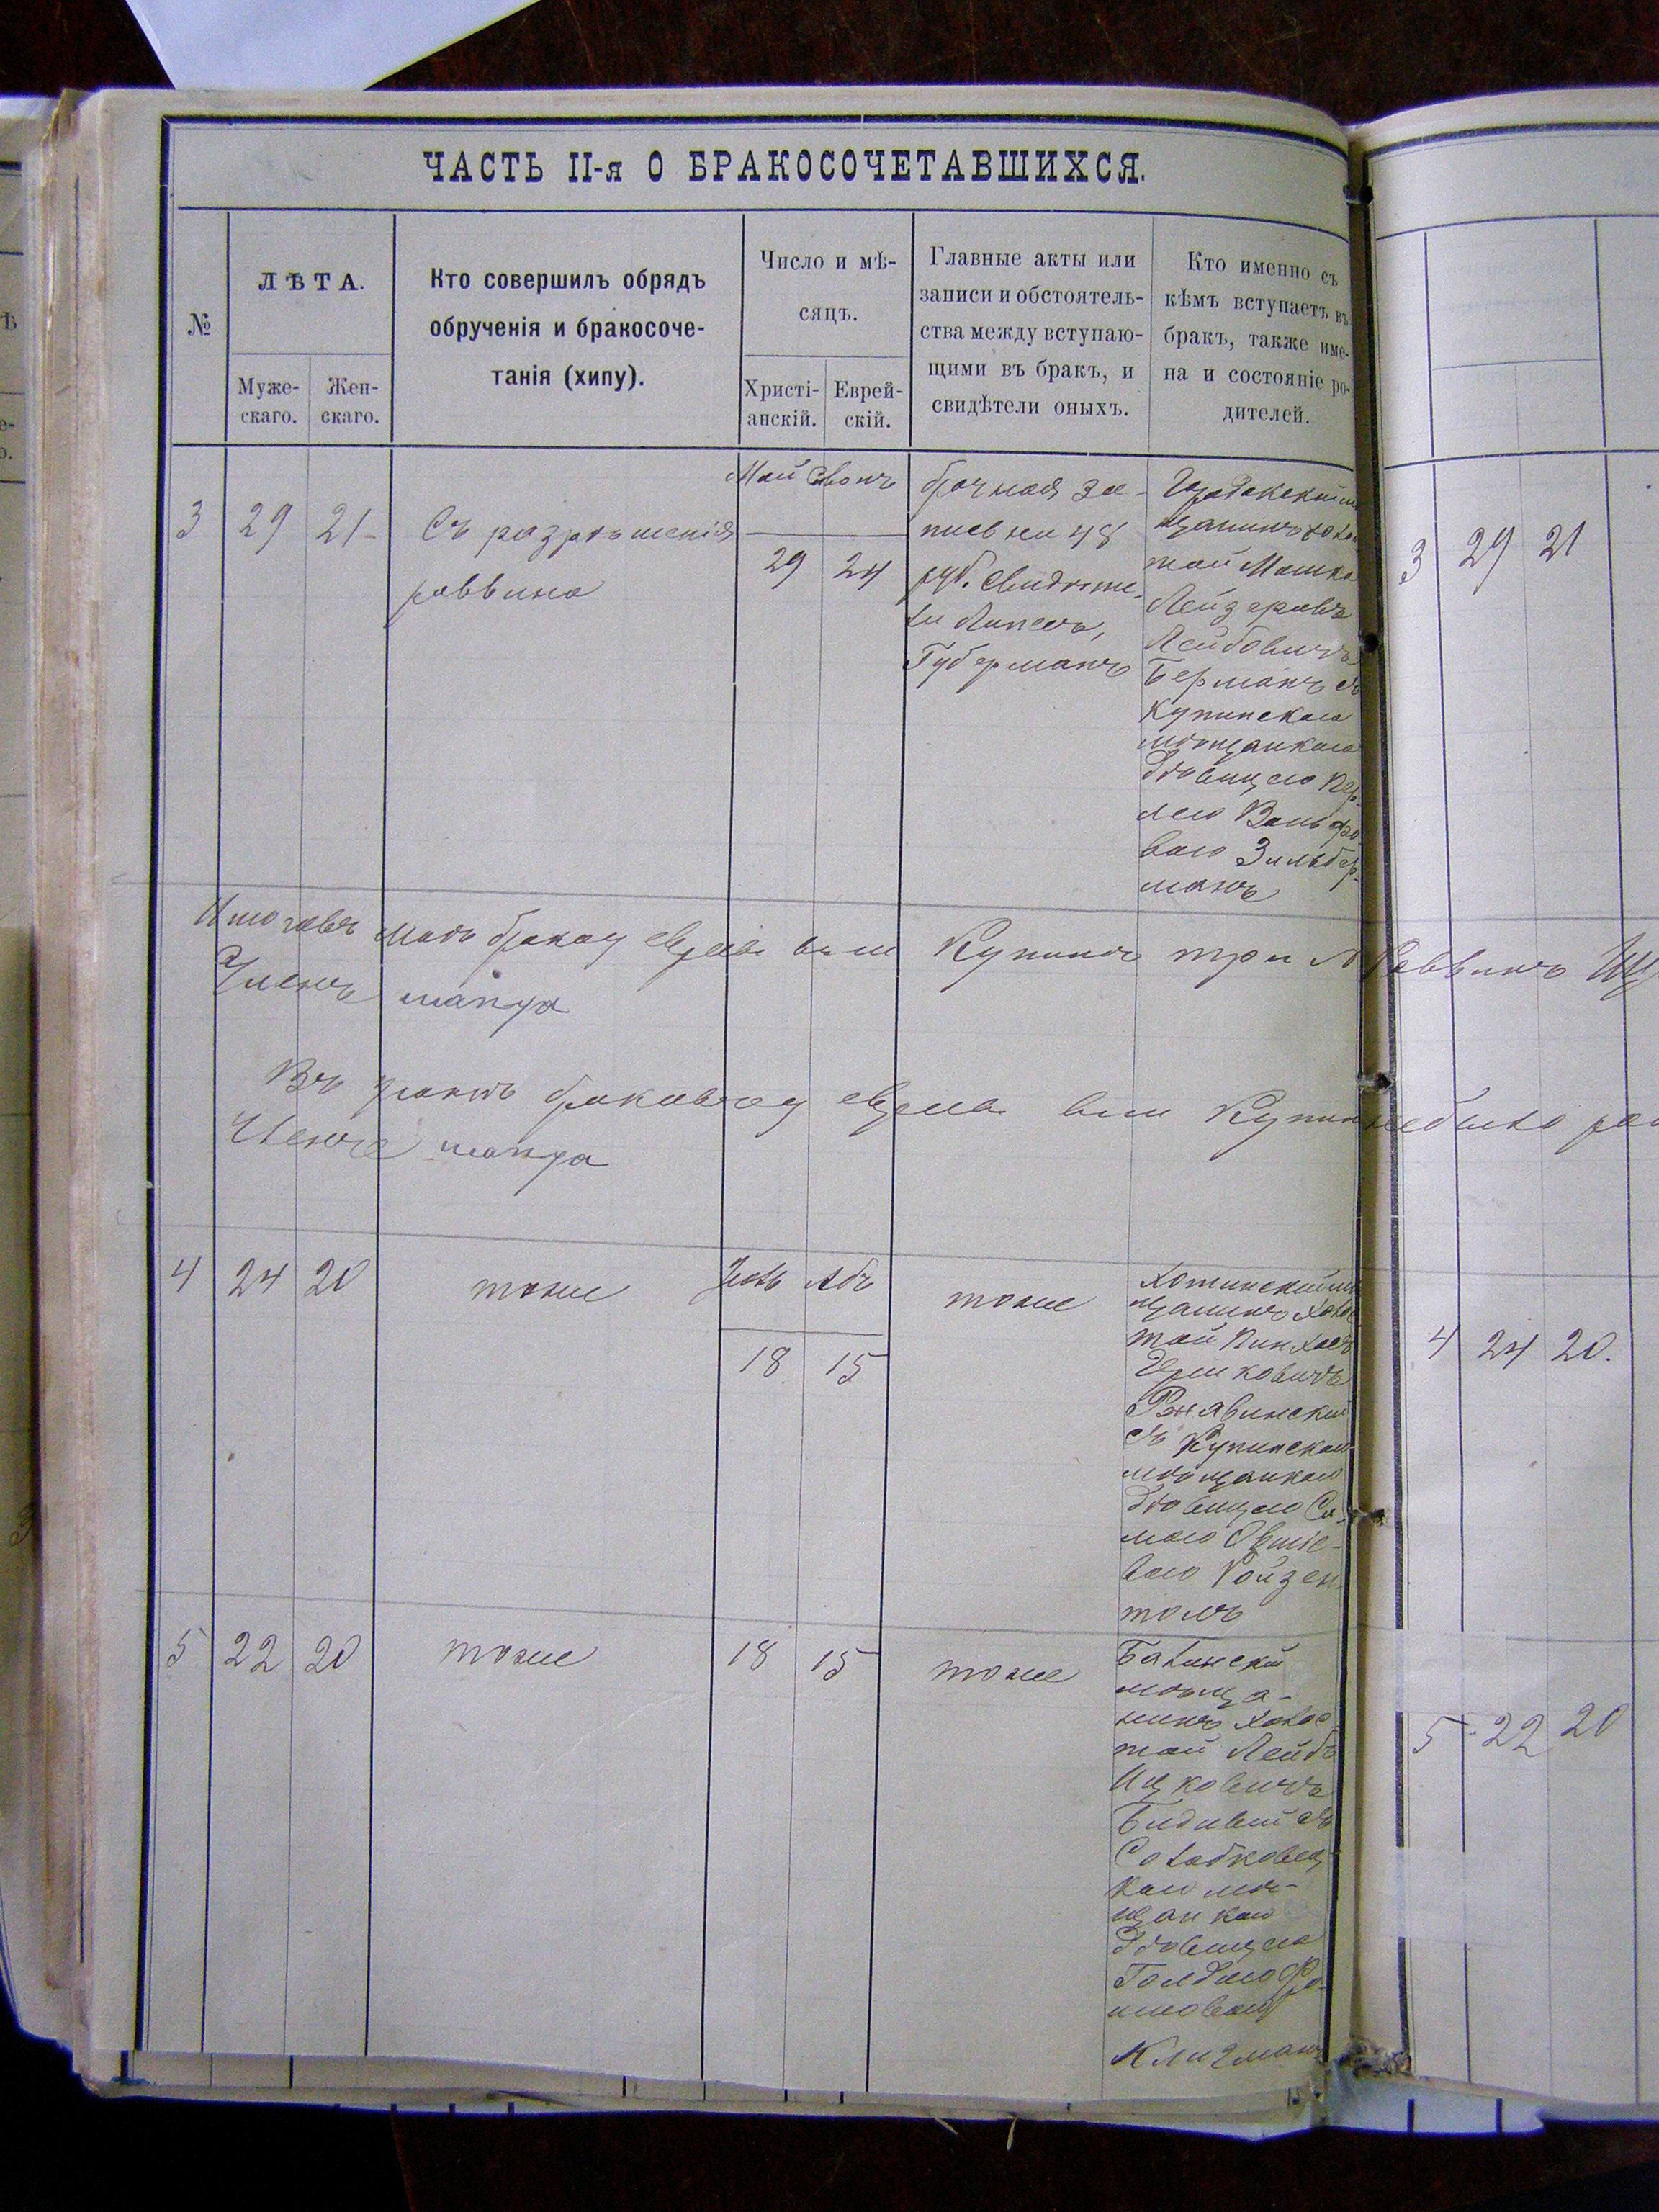 ЧАСТЬ II-я О БРАКОСОЧЕТАВШИХСЯ.
№
ЛѢТА.
Муже-
скаго.
Жен-
скаго.
Кто совершилъ обрядъ
обрученія и бракосоче-
танія (хипу).
Число и мѣ-
сяцъ.
Христі-
анскій.
Еврей-
скій.
Главные акты или
записи и обстоятель-
ства между вступаю-
щими въ бракъ, и
свидѣтели оныхъ.
Кто именно съ
кѣмъ вступаетъ въ
бракъ, также име-
на и состояніе ро-
дителей.
3
29
21
Съ разрѣшенія
раввина
Май Сивонъ
29 24
брачная за-
пись на 48
руб. Свидѣте-
ли
Губерманъ
мѣ-
щанинъ холос
той Мошко
Лейзеровъ
Лейбовичъ
Берманъ съ
Купинскою
мѣщанкою
дѣвицею Пер-
лею Вольфо
вою Зильбер-
манъ
Итого въ маѣ евреевъ въ м Купинѣ три Раввинъ
Членъ
Въ евреевъ въ м Купинѣ не было
Членъ
4
24
20
тоже
Іюль Абъ
18 15
тоже
Хотинскій мѣ
щанинъ холос
той Пинхасъ
Ржавинскій
съ Купинскою
мѣщанкою
дѣвицею Си-
мою
вою Ройзен-
таль
5
22
20
тоже
18 15
тоже
Балинскій
мѣща-
нинъ холос
той Лейбъ
Ицковичъ
съ
Солобковец
кою мѣ-
щанкою
дѣвицею
Голдою Фро-
имовою
Клигманъ
3 29 21
4 24 20.
5 22 20